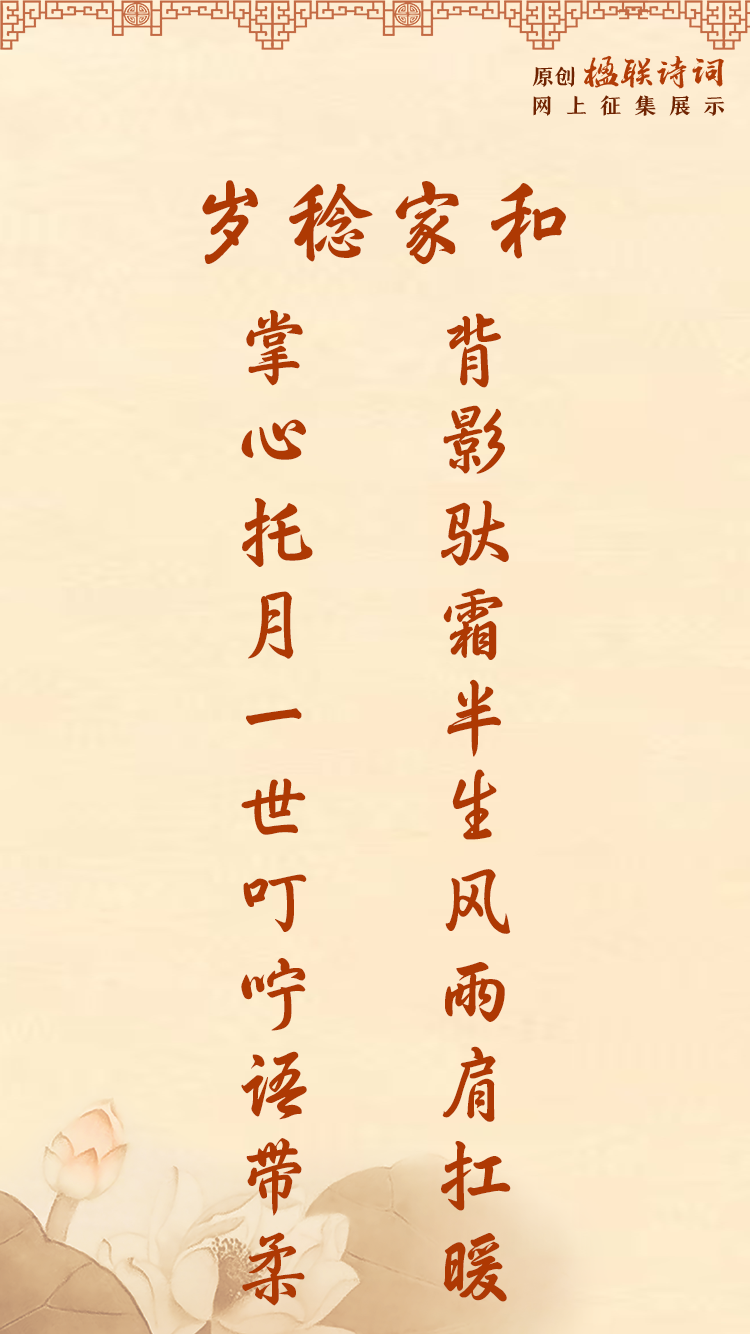 原创 楹联诗词
网上征集展示
岁稔家和
背影驮霜半生风雨肩扛暖
掌心托月一世叮咛语带柔